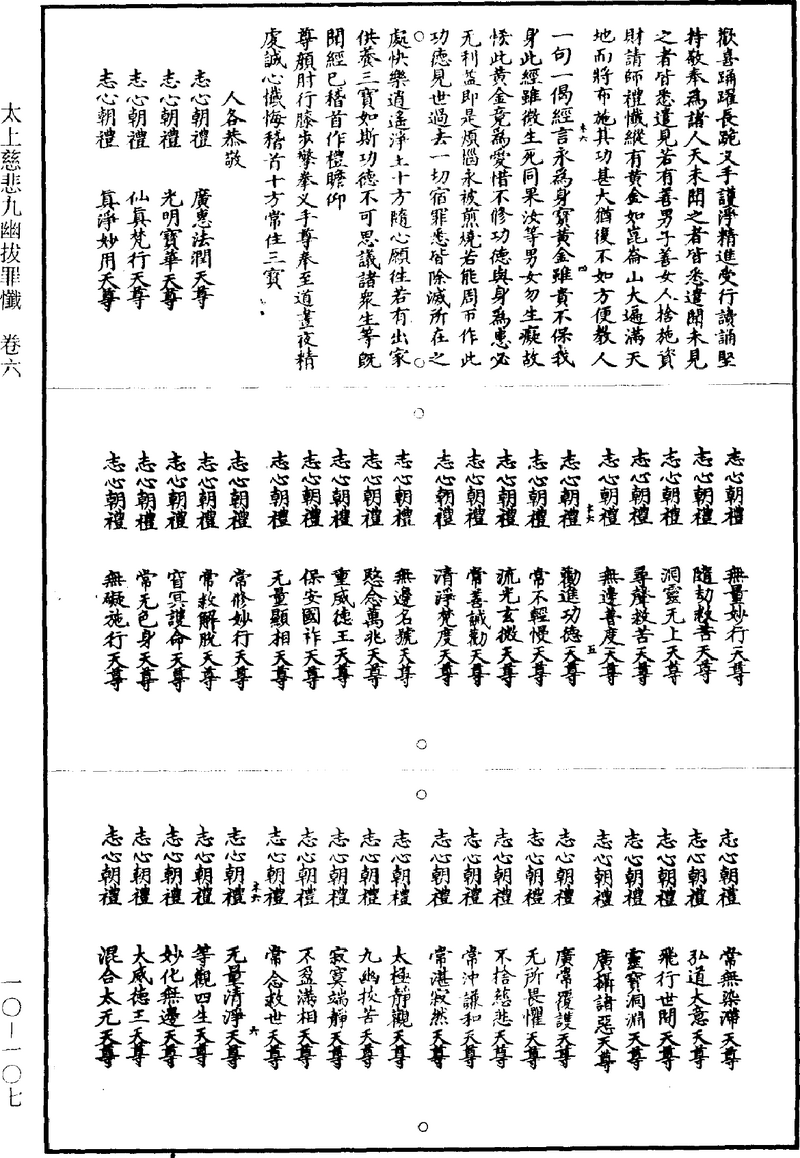 歡喜踊躍長跪叉手護淨精進受行讀誦堅
持敬奉為諸人天未聞之者皆悉遣聞未見
之者皆悉遣見若有善男子善女人捨施資
財請師禮懺縱有黃金如崑崙山大遍滿天
地而將布施其功甚大猶復不如方便教人
一句一偈經言永為身寶黃金雖貴不保我
身此經雖微生死同果汝等男女勿生癡故
恡此黃金竟為愛惜不修功德與身為患必
无利益即是煩惱永被煎燒若能周帀作此
功德見世過去一切宿罪悉皆除滅所在之
處快樂逍遙淨土十方隨心願往若有出家
供養三寶如斯功德不可思議諸衆生等既
聞經已稽首作禮瞻仰
尊顏肘行膝步擎拳叉手尊奉至道晝夜精
虔誠心懺悔稽首十方常住三寶
人各恭敬
志心朝禮 廣惠法潤天尊
志心朝禮 光明寶華天尊
志心朝禮 仙真梵行天尊
志心朝禮 真淨妙用天尊
志心朝禮 無量妙行天尊
志心朝禮 隨劫救苦天尊
志心朝禮 洞靈无上天尊
志心朝禮 尋聲救苦天尊
志心朝禮 無邊善度天尊
志心朝禮 勸進功德天尊
志心朝禮 常不輕慢天尊
志心朝禮 流光玄微天尊
志心朝禮 常善誡勸天尊
志心朝禮 清淨梵度天尊
志心朝禮 無邊名號天尊
志心朝禮 愍念萬兆天尊
志心朝禮 重威德王天尊
志心朝禮 保安國祚天尊
志心朝禮 无量顯相天尊
志心朝禮 常修妙行天尊
志心朝禮 常救解脫天尊
志心朝禮 窅冥護命天尊
志心朝禮 常无色身天尊
志心朝禮 無礙施行天尊
志心朝禮 常無染滯天尊
志心朝禮 弘道大意天尊
志心朝禮 飛行世間天尊
志心朝禮 靈寶洞淵天尊
志心朝禮 廣攝諸惡天尊
志心朝禮 廣常覆護天尊
志心朝禮 无所畏懼天尊
志心朝禮 不捨慈悲天尊
志心朝禮 常沖謙和天尊
志心朝禮 常湛寂然天尊
志心朝禮 太極靜觀天尊
志心朝禮 九幽拔苦天尊
志心朝禮 寂寞端靜天尊
志心朝禮 不盈滿相天尊
志心朝禮 常念救世天尊
志心朝禮 无量清淨天尊
志心朝禮 等觀四生天尊
志心朝禮 妙化無邊天尊
志心朝禮 大威德王天尊
志心朝禮 混合太无天尊
太上慈悲九幽拔罪懺 卷六
一〇—一〇七